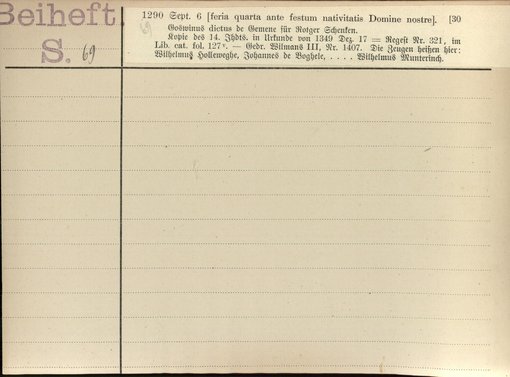 Beiheft
S. 69
1290 Sept. 6 [feria quarta ante festum nativitatis Domine nostre]. [30
69
Goswinus dictus de Gemene für Rotger Schenken.
Kopie des 14. Jhdts. in Urkunde von 1349 Dez. 17 = Regest Nr. 321, im
Lib. cat. fol. 127v. — Gedr. Wilmans III, Nr. 1407. Die Zeugen heißen hier:
Wilhelmus Holleweghe, Johannes de Boghele, . . . . Wilhelmus Munterinch.